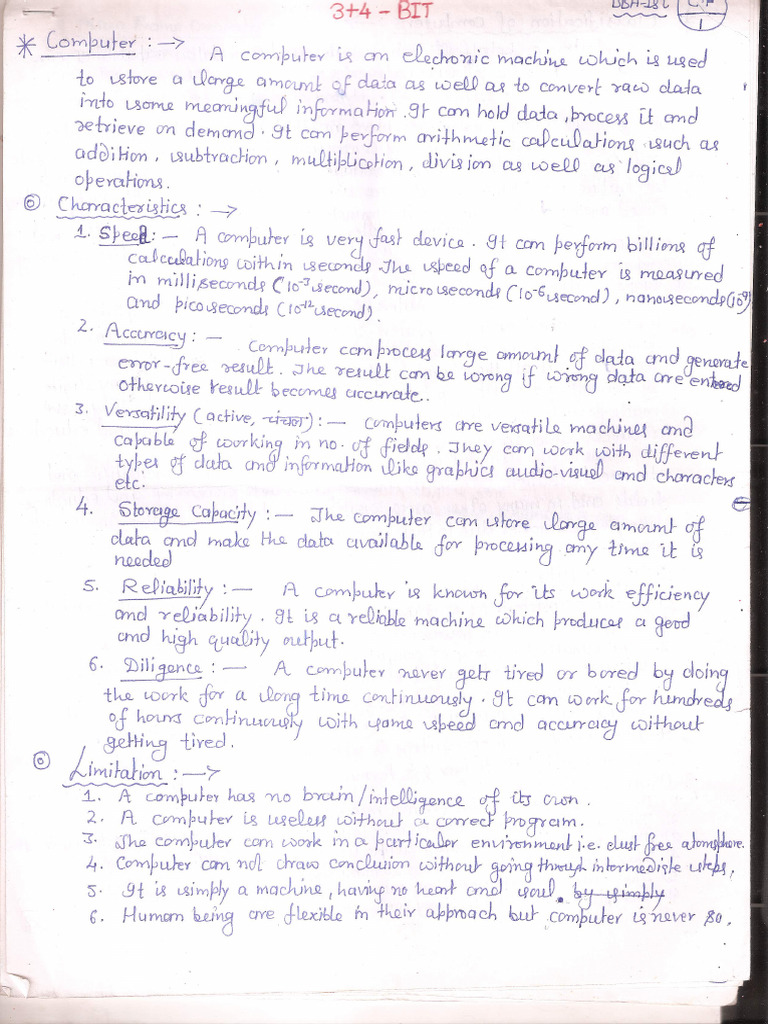 3+4 - BIT
C.F
1
* Computer :-> A computer is an electronic machine which is used
to store a large amount of data as well as to convert raw data
into some meaningful information. It can hold data, process it and
retrieve on demand. It can perform arithmetic calculations such as
addition, subtraction, multiplication, division as well as logical
operations.
Characteristics :->
1. Speed :- A computer is very fast device. It can perform billions of
calculations within seconds. The speed of a computer is measured
in milliseconds (10-3 second), microseconds (10-6 second), nanoseconds (10-9)
and picoseconds (10-12 second).
2. Accuracy :- Computer can process large amount of data and generate
error-free result. The result can be wrong if wrong data are entered
otherwise result becomes accurate..
3. Versatility (active, चंचल) :- Computers are versatile machines and
capable of working in no. of fields. They can work with different
types of data and information like graphics audio-visual and characters
etc.
4. Storage Capacity :- The computer can store large amount of
data and make the data available for processing any time it is
needed
5. Reliability :- A computer is known for its work efficiency
and reliability. It is a reliable machine which produces a good
and high quality output.
6. Diligence :- A computer never gets tired or bored by doing
the work for a long time continuously. It can work for hundreds
of hours continuously with same speed and accuracy without
getting tired.
Limitation :->
1. A computer has no brain/intelligence of its own.
2. A computer is useless without a correct program.
3. The computer can work in a particular environment i.e. dust free atomsphere.
4. Computer can not draw conclusion without going through intermediate steps,
5. It is simply a machine, having no heart and soul. by simply
6. Human being are flexible in their approach but computer is never so.